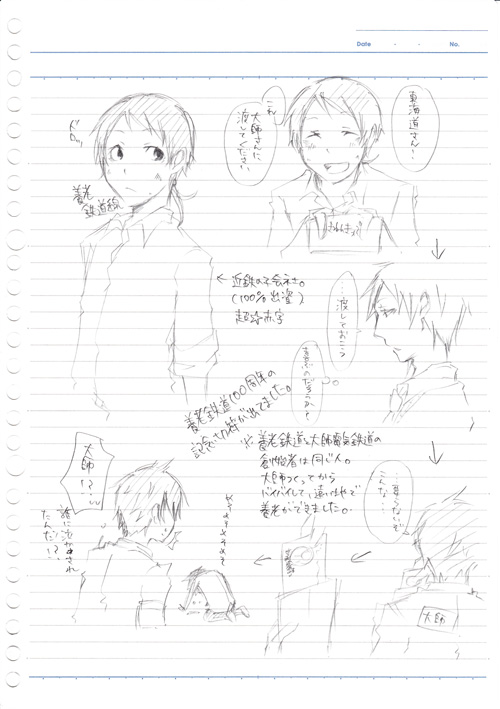 Date ・ ・ No.
東海道さん…
これ
大師さんに
渡してください
おめんきつ
ドロッ
養老
鉄道線
← 近鉄の子会社。
(100%出資)
超路赤字
……渡しておこう
養老鉄道100周年の
記念きっ符が出てました。
※養老鉄道と大師電気鉄道の
創始者は同じ人。
大師つくってから
バイバイして、遠い地で
養老ができました。
こんな…
大師
大師
!?…
誰に泣かされ
たんだ!?
めそめそめそめそ